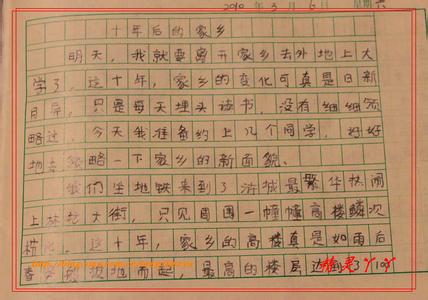 2010 年 3 月 6 日 星期六
十年后的家乡
明天，我就要离开家乡去外地上大
学了，这十年，家乡的变化可真是日新
月异，只是每天埋头读书，没有细细领
略过，今天我准备约上几个同学，好好
地去领略一下家乡的新面貌。
我们坐地铁来到了 城最繁华热闹
上林 大街，只见周围一幢幢高楼鳞次
栉比，这十年，家乡的高楼真是如雨后
春笋般拔地而起，最高的楼层达到了